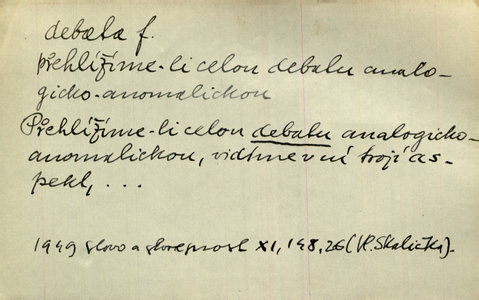 debata f.
přehlížíme-li celou debatu analo-
gicko-anomalickou
Přehlížíme-li celou debatu analogicko-
anomalickou, vidíme v ní trojí as-
pekt, ...
1949 slovo a slovesnost XI, 148, 26 (Vl. Skalička).